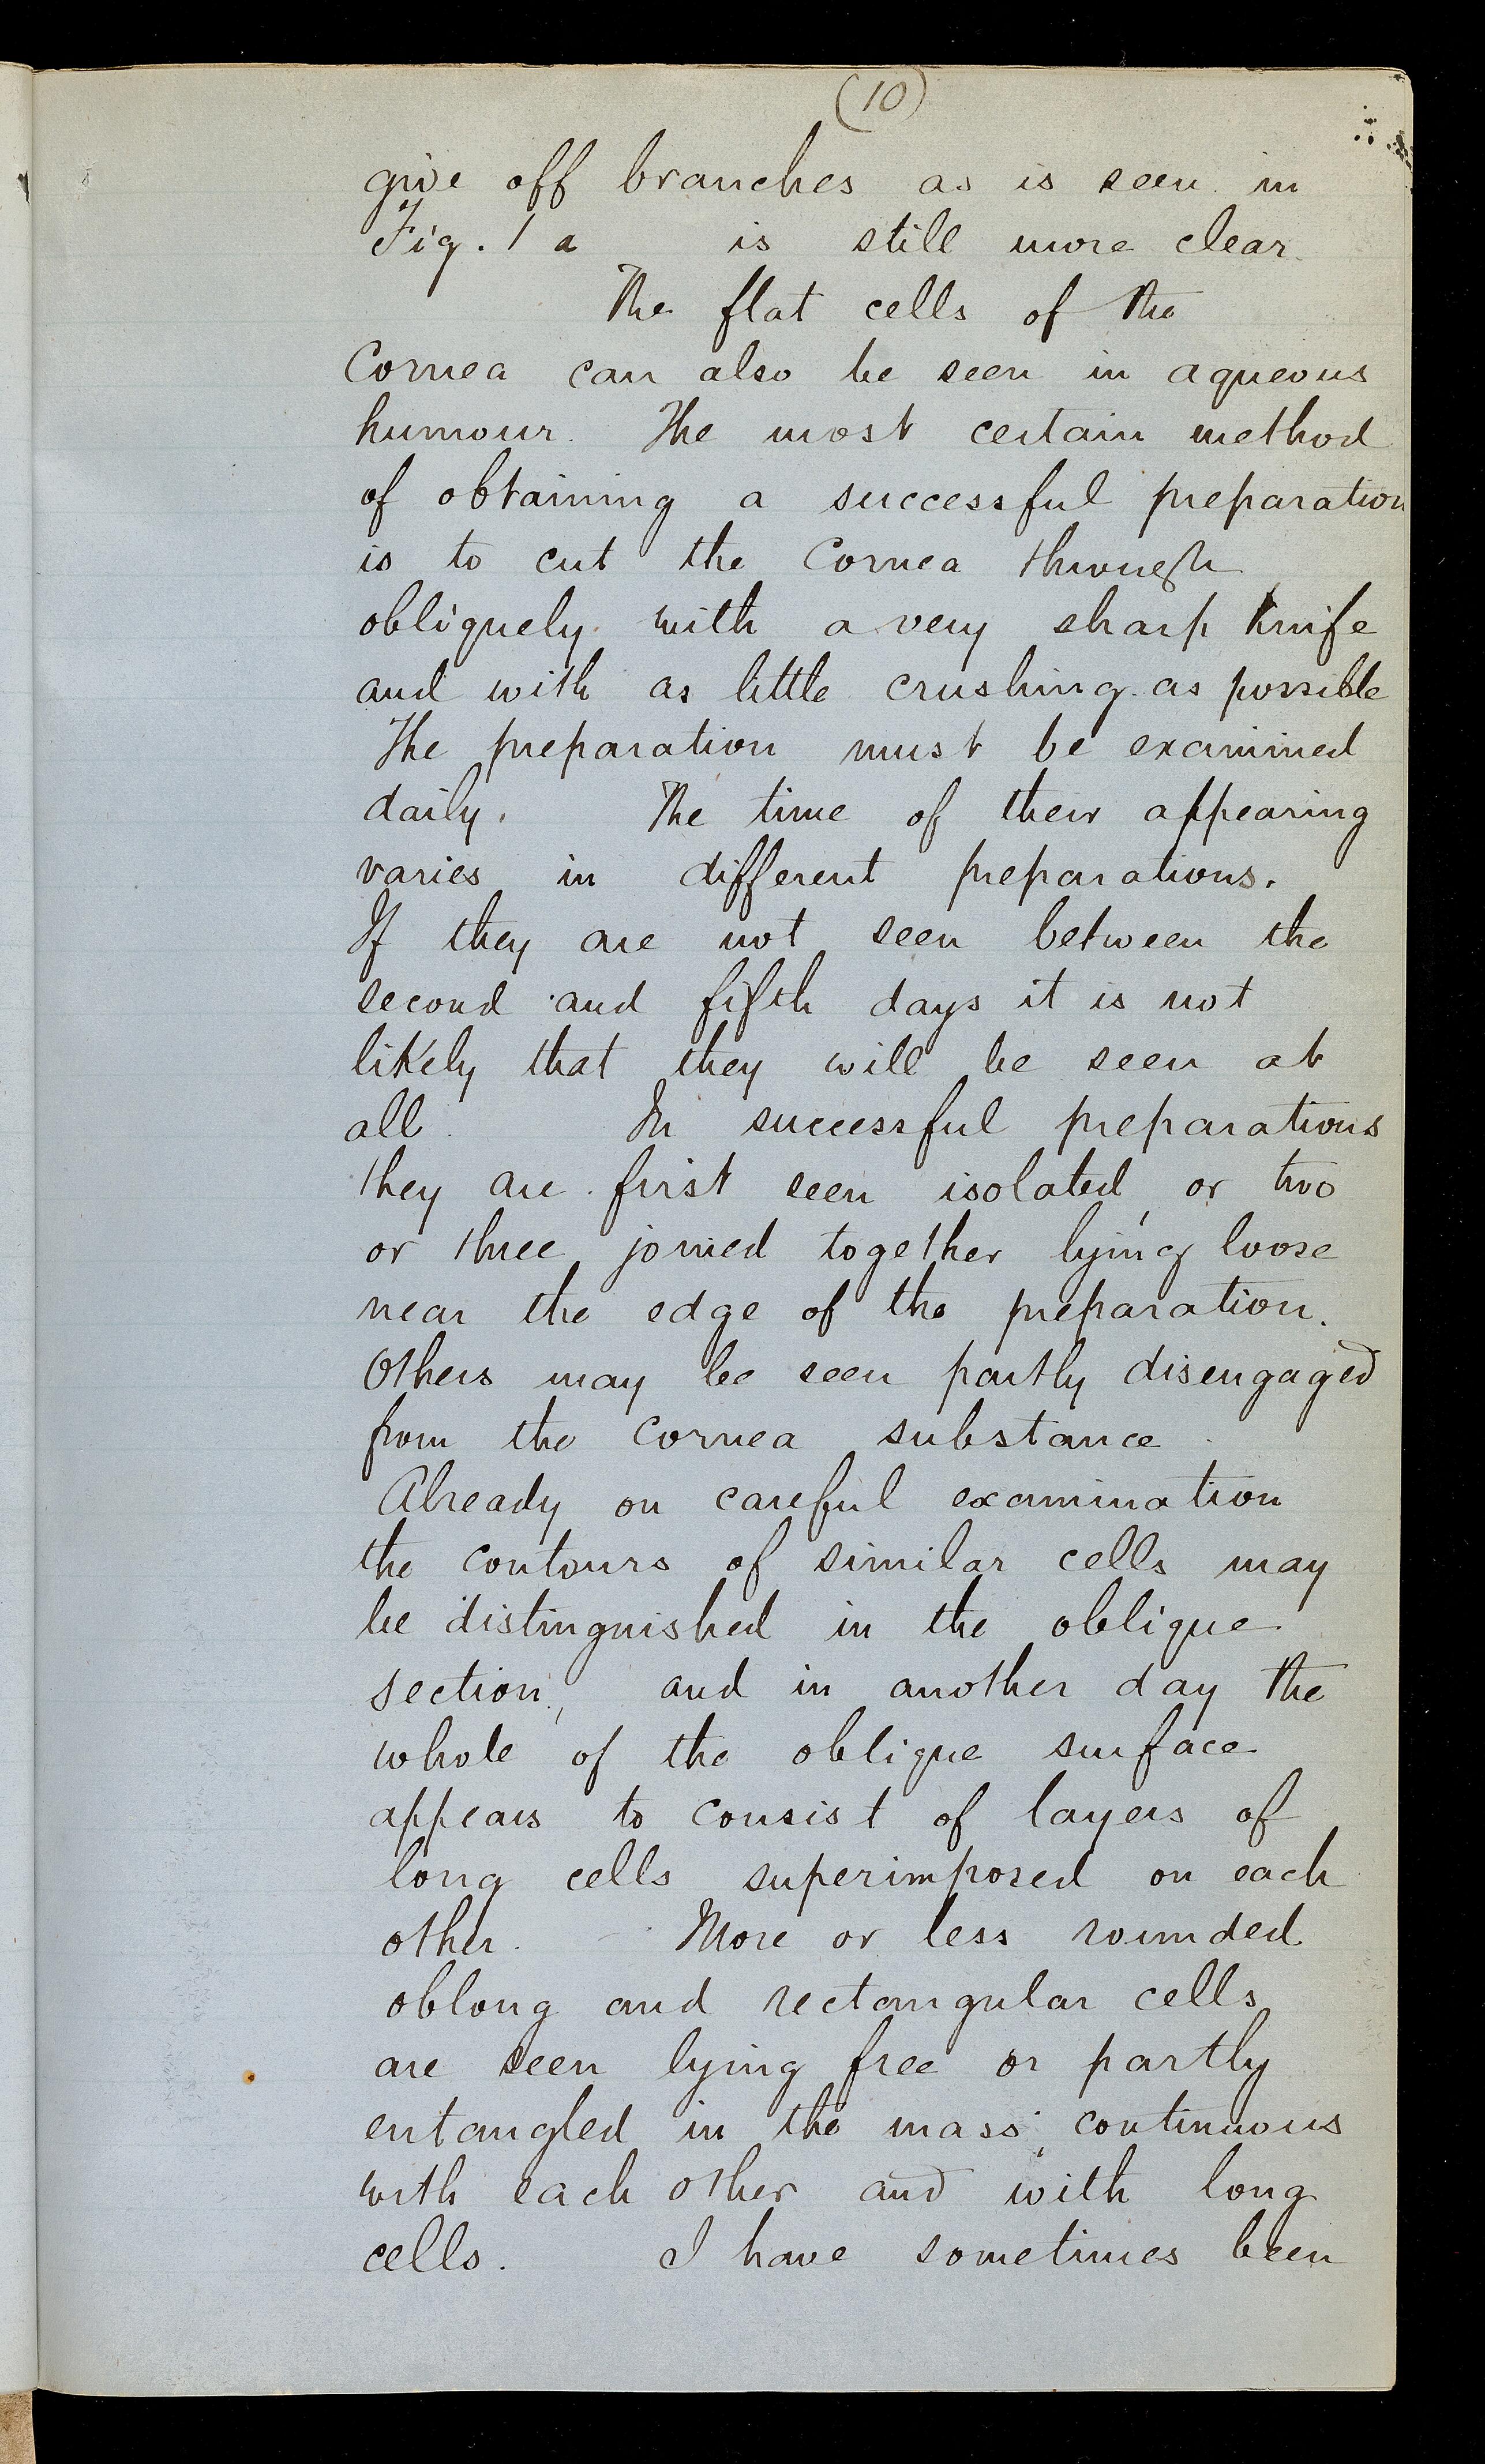 (10)
give off branches as is seen in
Fig. 1 a is still more clear.
The flat cells of the
Cornea can also be seen in aqueous
humour. The most certain method
of obtaining a successful preparation
is to cut the Cornea through
obliquely with a very sharp knife
and with as little crushing as possible
The preparation must be examined
daily. The time of their appearing
varies in different preparations.
If they are not seen between the
second and fifth days it is not
likely that they will be seen at
all. In successful preparations
they are first seen isolated, or two
or three joined together lying loose
near the edge of the preparation.
Others may be seen partly disengaged
from the cornea substance.
Already on careful examination
the contours of similar cells may
be distinguished in the oblique
section, and in another day the
whole of the oblique surface
appears to consist of layers of
long cells superimposed on each
other. More or less rounded
oblong and rectangular cells
are seen lying free or partly
entangled in the mass, continuous
with each other and with long
cells. I have sometimes been